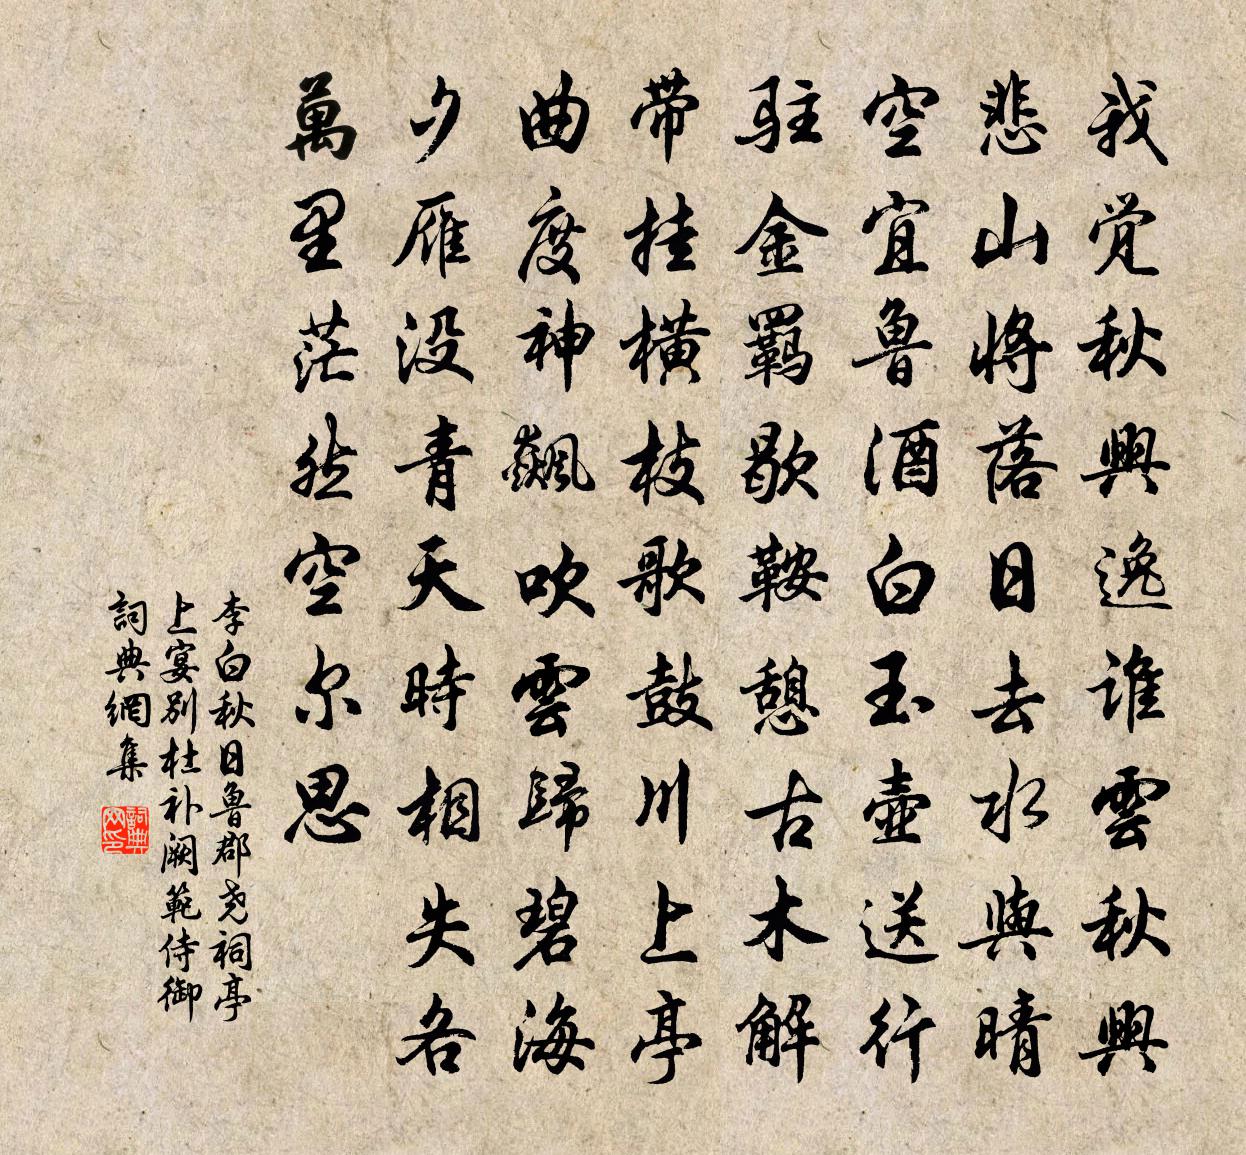 我觉秋興逸谁雲秋興
悲山將落日去水與晴
空宜鲁酒白玉壶送行
駐金羁歇鞍憩古木解
带挂横枝歌鼓川上亭
曲度神飙吹雲歸碧海
夕雁没青天時相失各
萬里茫然空尔思
李白秋日鲁郡尧祠亭
上宴别杜补阙範侍御
詞典網集